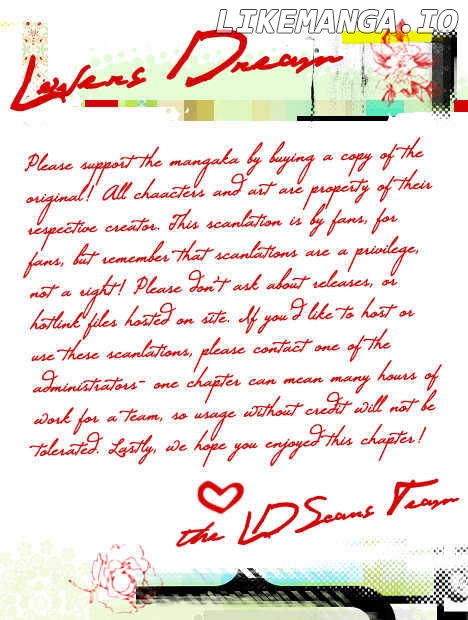 LIKEMANGA.IO
Lovers Dream
Please support the mangaka by buying a copy of the
original! All chaacters and art are property of their
respective creator. This scanlation is by fans, for
fans, but remember that scanlations are a privilege,
not a right! Please don't ask about releases, or
hotlink files hosted on site. If you'd like to host or
use these scanlations, please contact one of the
administrators- one chapter can mean many hours of
work for a team, so usage without credit will not be
tolerated. Lastly, we hope you enjoyed this chapter!
the LDScans Team